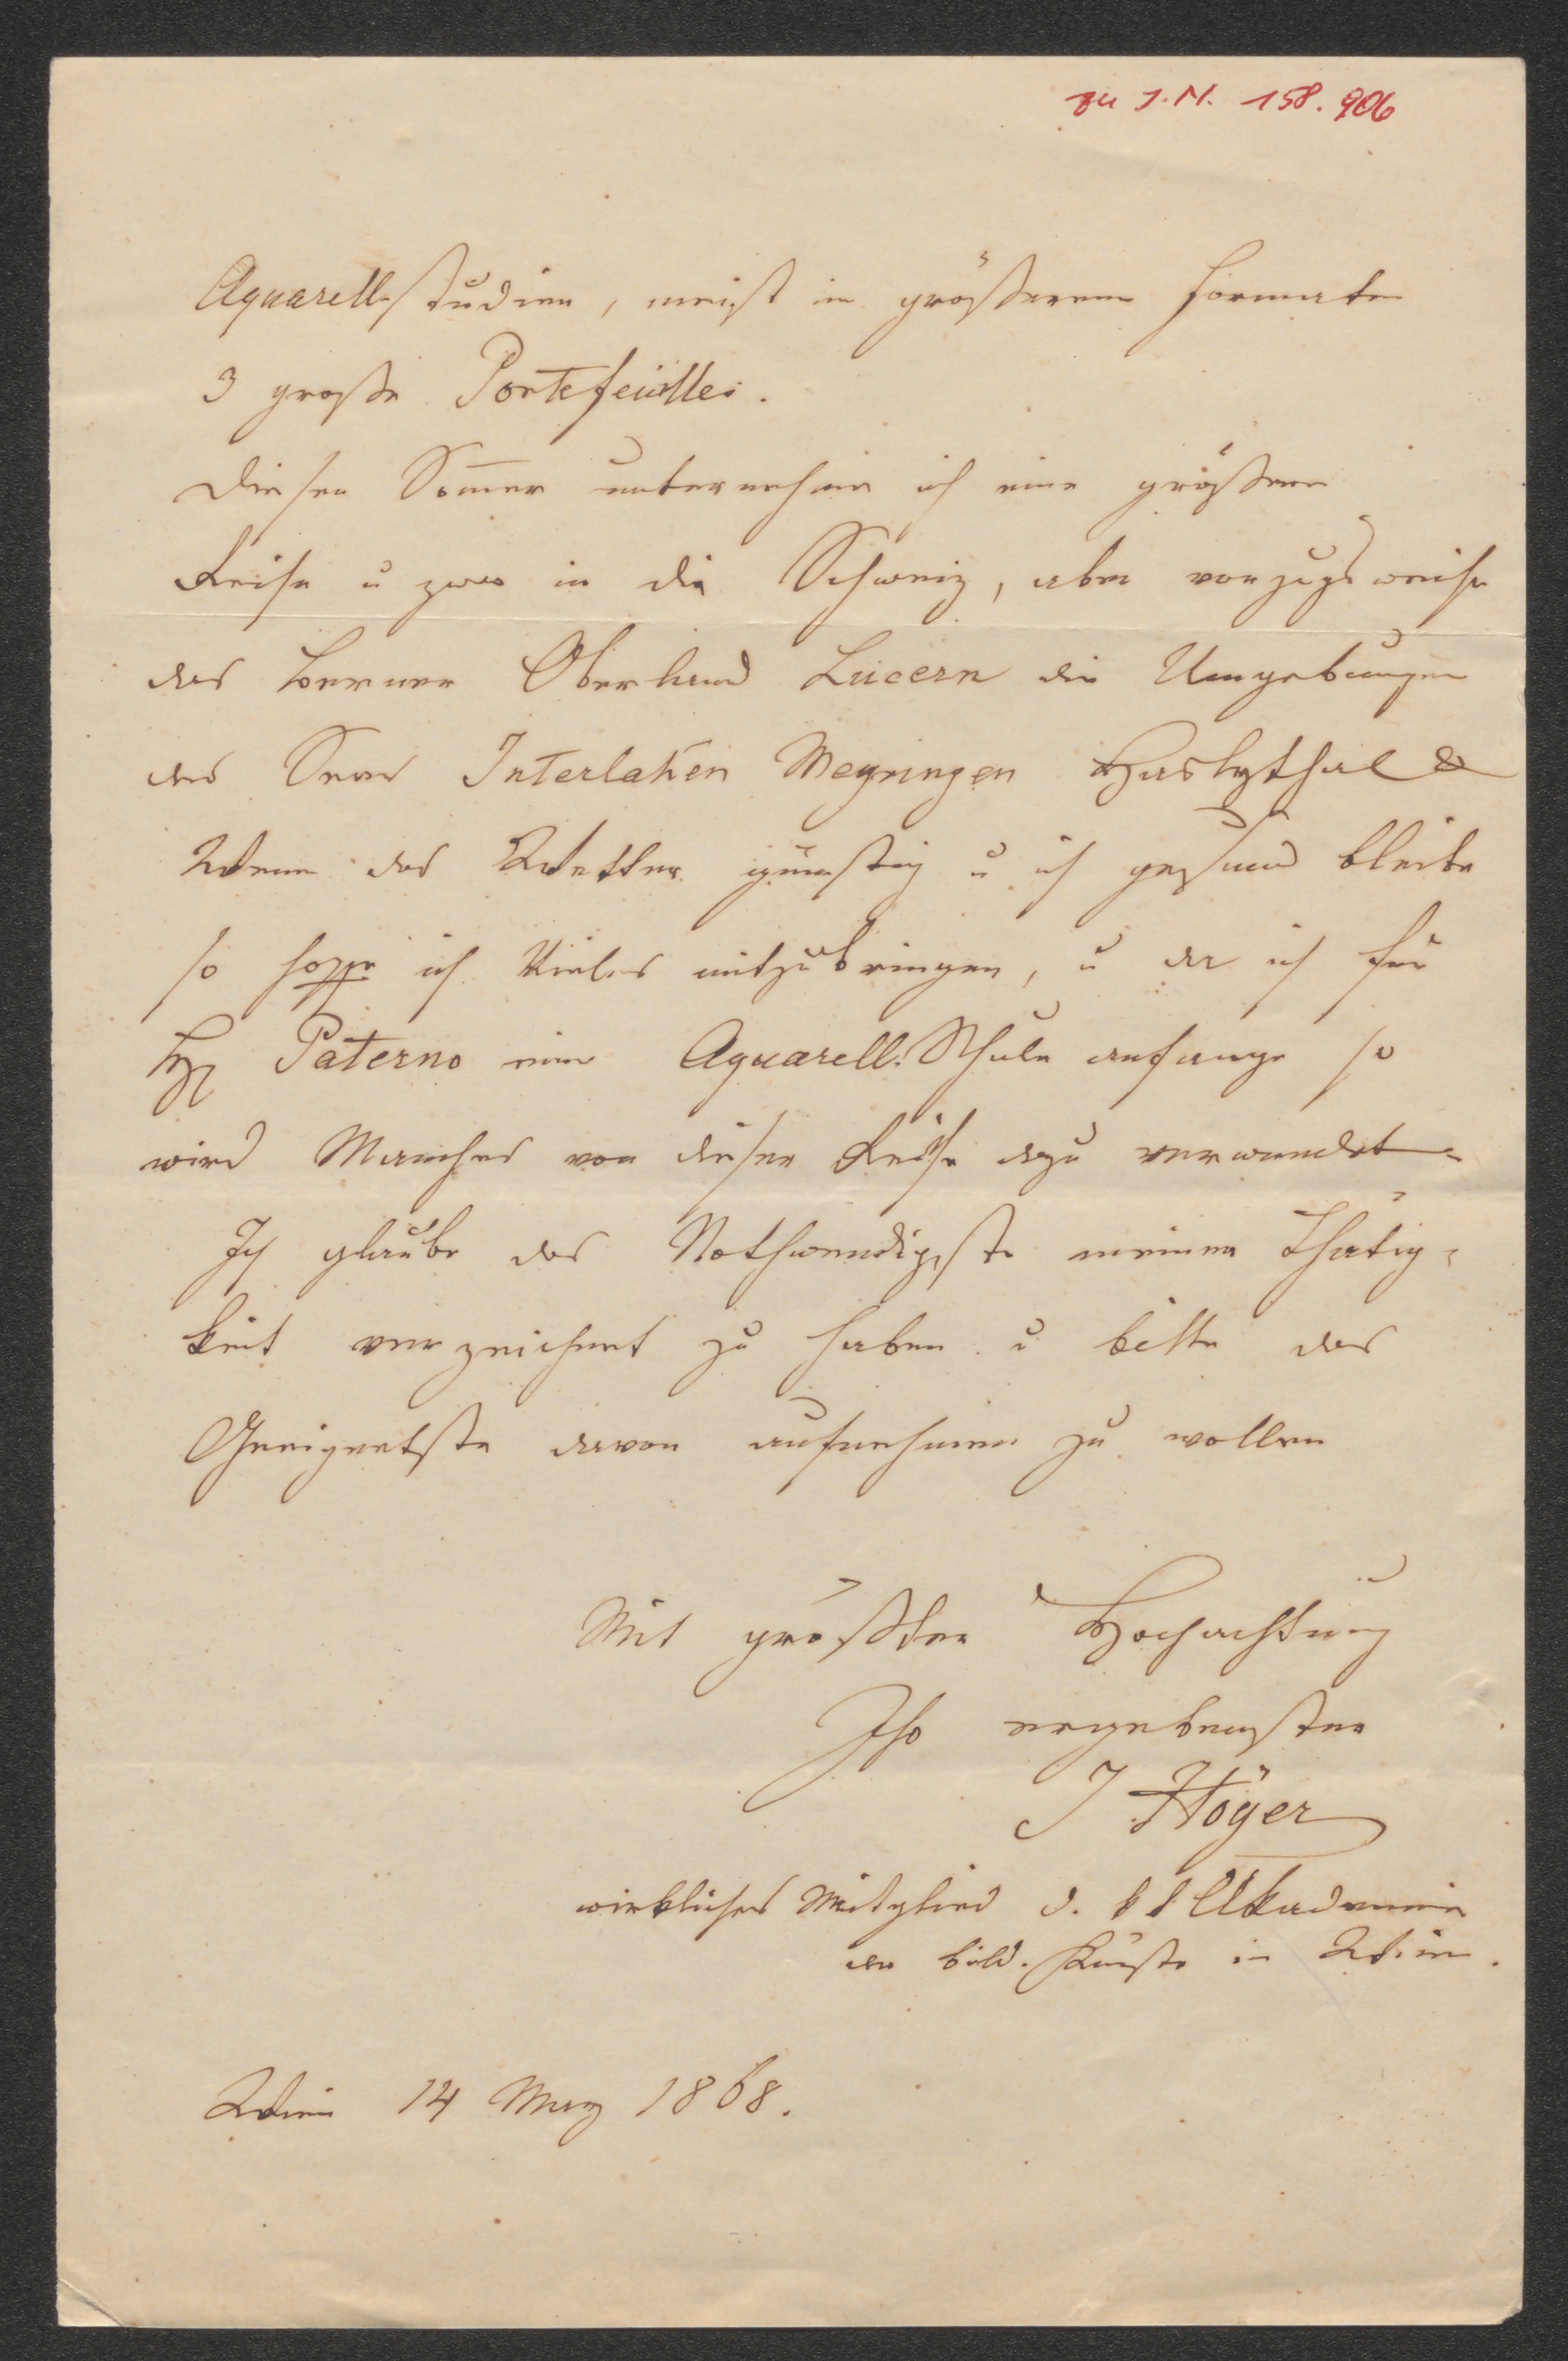 zu I.N. 158.906
Aquarell-Studien, meist in größerem Formate
3 große Portefeuilles.
Diesen Som̄er unternehme ich eine größere
Reise u zwar in die Schweiz, aber vorzugsweise
das Berner Oberland Lucern die Umgebungen
des Sees Interlaken Meyringen Haslythal &
Wenn das Wetter günstig u ich gesund bleibe
so hoffe ich Vieles mitzubringen, u da ich für
H Paterno eine Aquarell-Schule anfange so
wird Manches von dieser Reise dazu verwendet
Ich glaube das Nothwendigste meiner Thätig-
keit verzeichnet zu haben u bitte das
Geeignetste davon aufnehmen zu wollen
Mit größter Hochachtung
Ihr ergebenster
J Höger
wirkliches Mitglied d. k k Akademie
der bild. Künste in Wien.
Wien 14 May 1868.